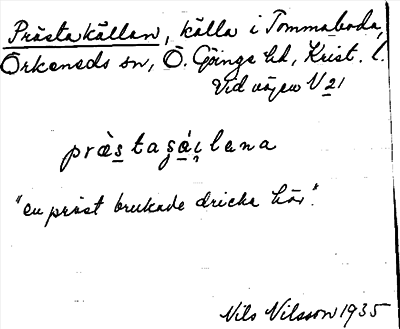 Prästakällan, källa i Tommaboda,
Örkeneds sn, Ö. Göinge hd, Krist. l.
Vid vägen V21
præstagä́ılena
"en präst brukade dricka här".
Nils Nilsson 1935